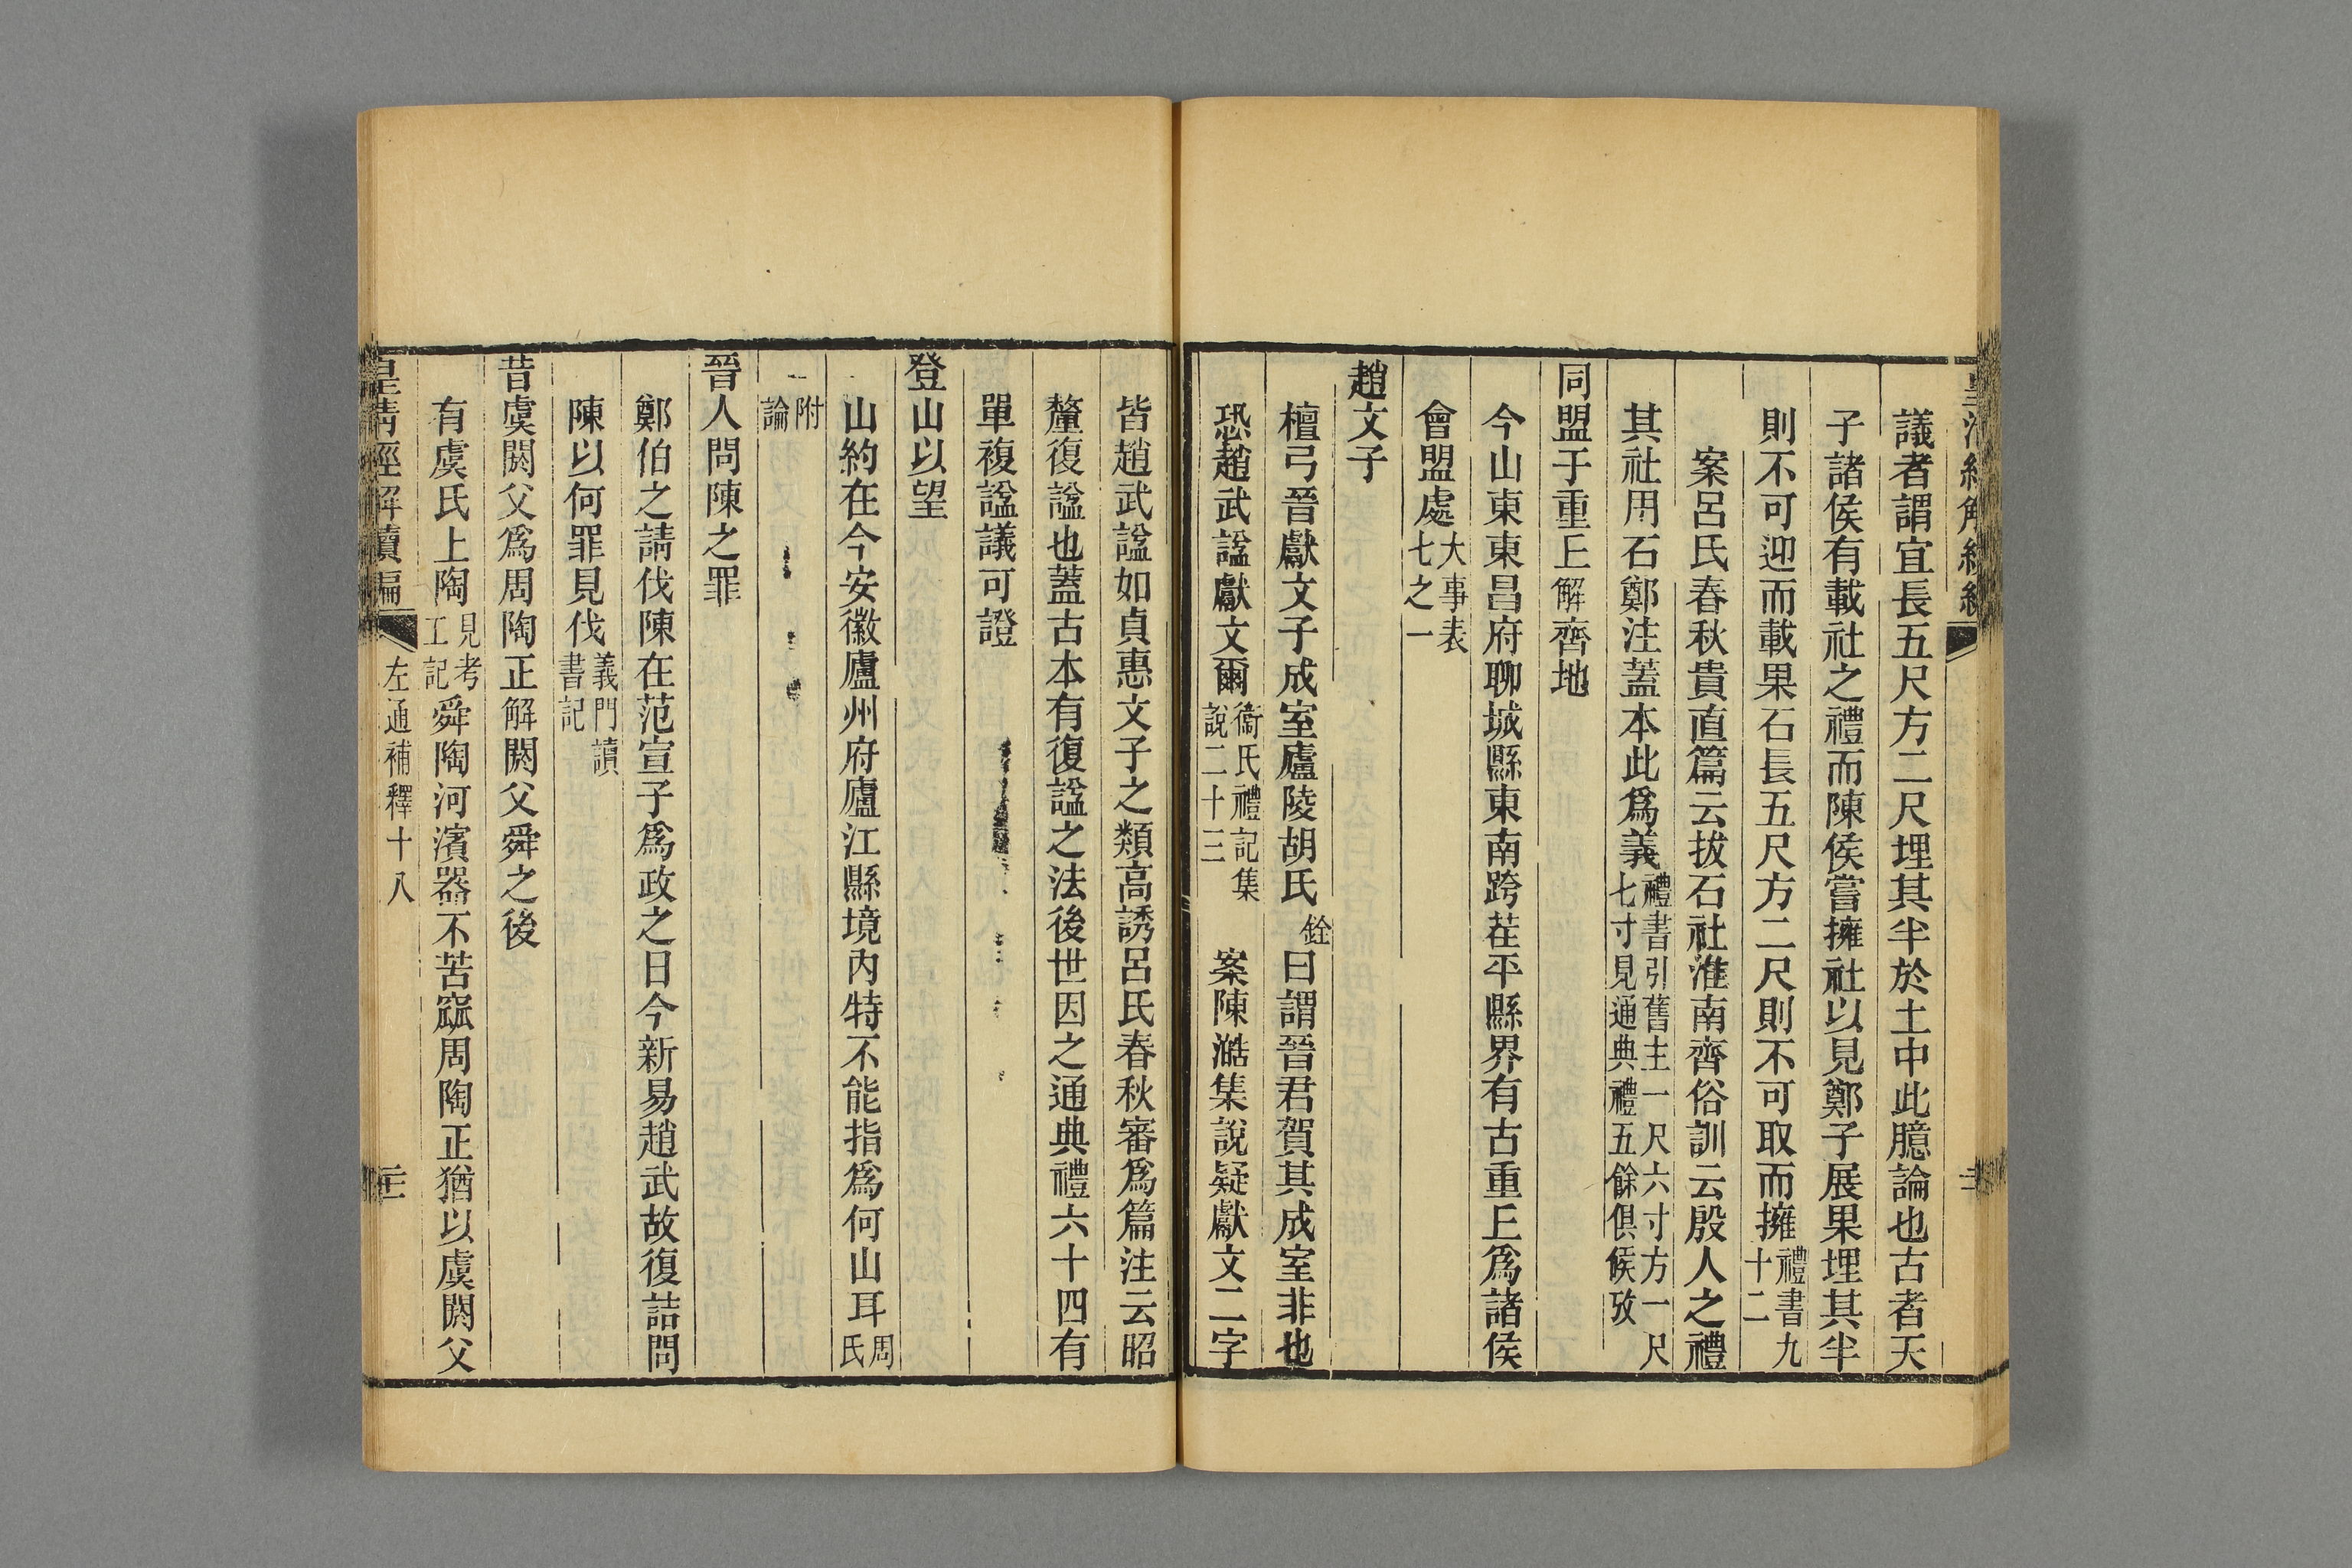 議者謂宜長五尺方二尺埋其半於土中此臆論也古者天
子諸侯有載社之禮而陳侯嘗擁社以見鄭子展果埋其半
則不可迎而載果石長五尺方二尺則不可取而擁禮書九十二
案呂氏春秋貴直篇云拔石社淮南齊俗訓云殷人之禮
其社用石鄭注蓋本此爲義禮書引舊主一尺六寸方一尺七寸見通典禮五餘俱候攷
同盟于重丘解齊地
今山東東昌府聊城縣東南跨茌平縣界有古重丘爲諸侯
會盟處大事表七之一
趙文子
檀弓晉獻文子成室廬陵胡氏銓曰謂晉君賀其成室非也
恐趙武諡獻文爾衞氏禮記集說二十三 案陳澔集說疑獻文二字
皆趙武諡如貞惠文子之類高誘呂氏春秋審爲篇注云昭
釐復諡也蓋古本有復諡之法後世因之通典禮六十四有
單複諡議可證
登山以望
山約在今安徽廬州府廬江縣境內特不能指爲何山耳周氏
附論
晉人問陳之罪
鄭伯之請伐陳在范宣子爲政之日今新易趙武故復詰問
陳以何罪見伐義門讀書記
昔虞閼父爲周陶正解閼父舜之後
有虞氏上陶見考工記舜陶河濱器不苦窳周陶正猶以虞閼父
皇清經解續編
左通補釋十八